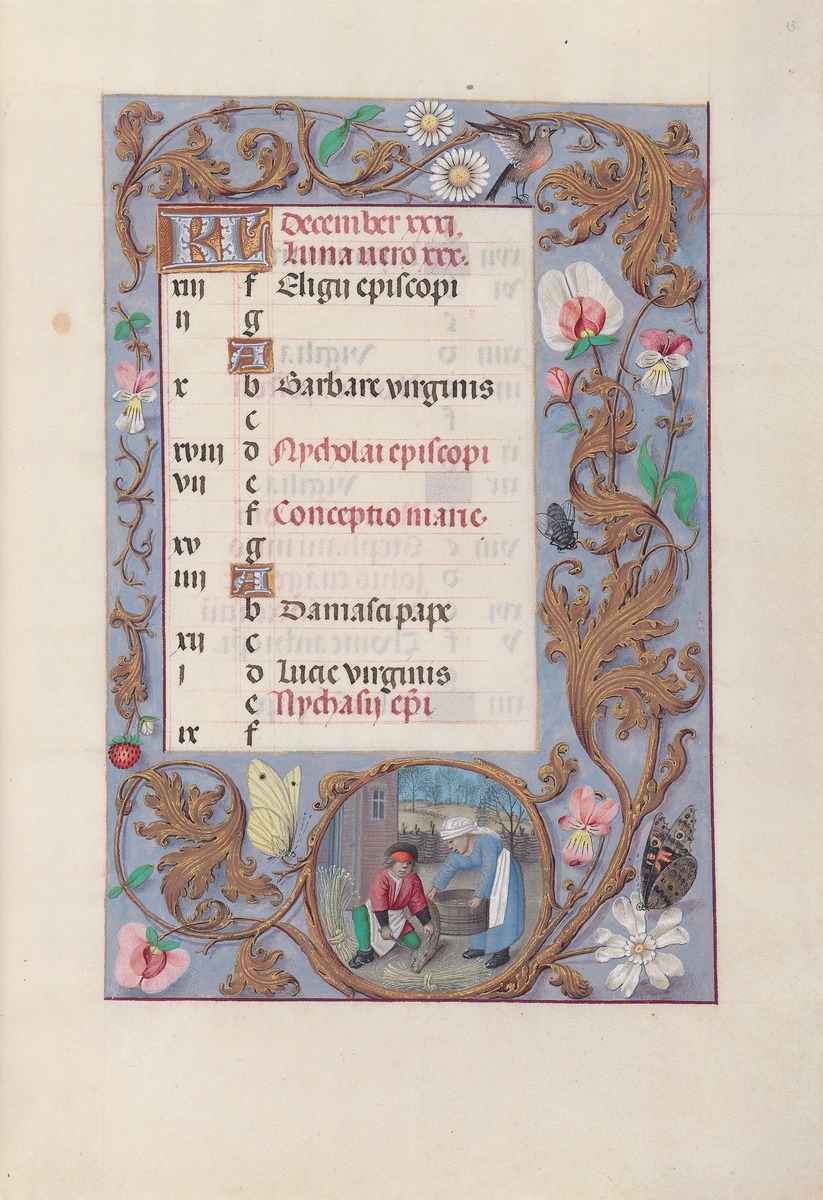 13
KL December xxxi.
Luna vero xxx.
xiii f Eligii episcopi
ii g
A
x b Barbare virginis
c
xviii d Nycholai episcopi
vii e
f Conceptio marie.
xv g
iiii A
b Damasci pape
xii c
i d Lucie virginis
e Nychasii epi
ix f